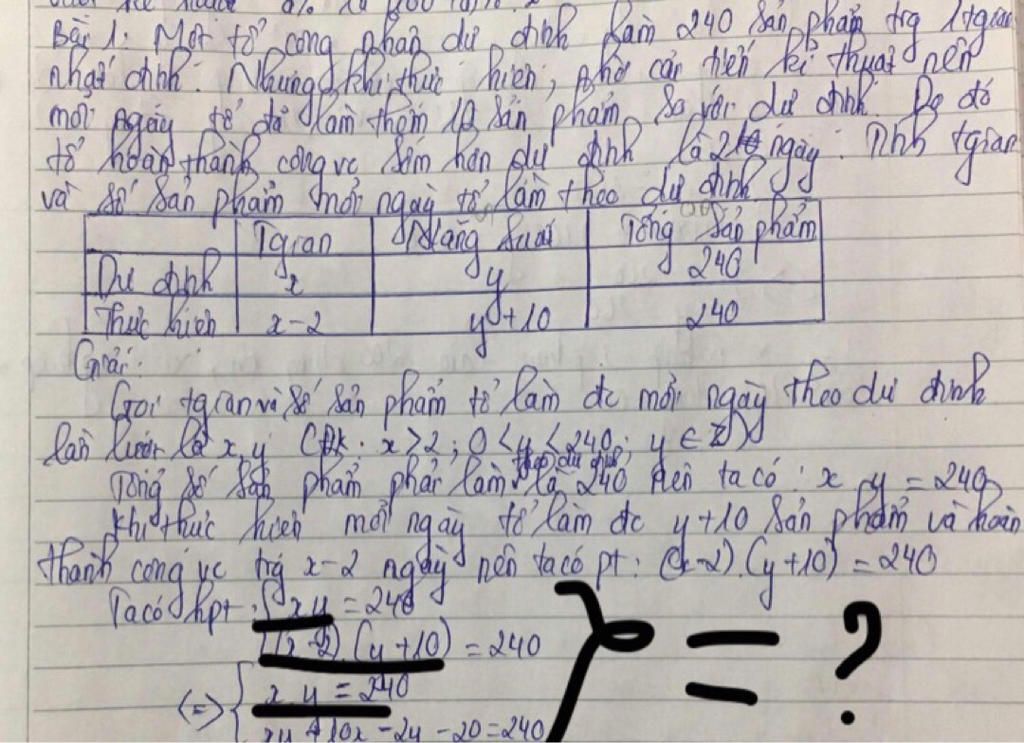 Bài 1: Một tổ công nhân dự định làm 240 sản phẩm trg 1 tgian
nhất định. Nhưng khi thực hiện, nhờ cải tiến kĩ thuật nên
mỗi ngày tổ đã làm thêm 10 sản phẩm so với dự định. Do đó
tổ hoàn thành công vc sớm hơn dự định là 2 ngày. Tính tgian
và số sản phẩm mỗi ngày tổ làm theo dự định
Tgian Năng suất Tổng sản phẩm
Dự định x y 240
Thực hiện x-2 y+10 240
Giải:
Gọi tgian và số sản phẩm tổ làm đc mỗi ngày theo dự định
lần lượt là x, y (ĐK: x>2; 0<y<240; y ∈ Z)
Tổng số sản phẩm phải làm theo dự định là 240 nên ta có: x.y = 240
Khi thực hiện mỗi ngày tổ làm đc y+10 sản phẩm và hoàn
thành công vc trg x-2 ngày nên ta có pt: (x-2).(y+10) = 240
Ta có hpt: { xy = 240
(x-2).(y+10) = 240
(=) { x.y = 240
xy + 10x - 2y - 20 = 240
= ?